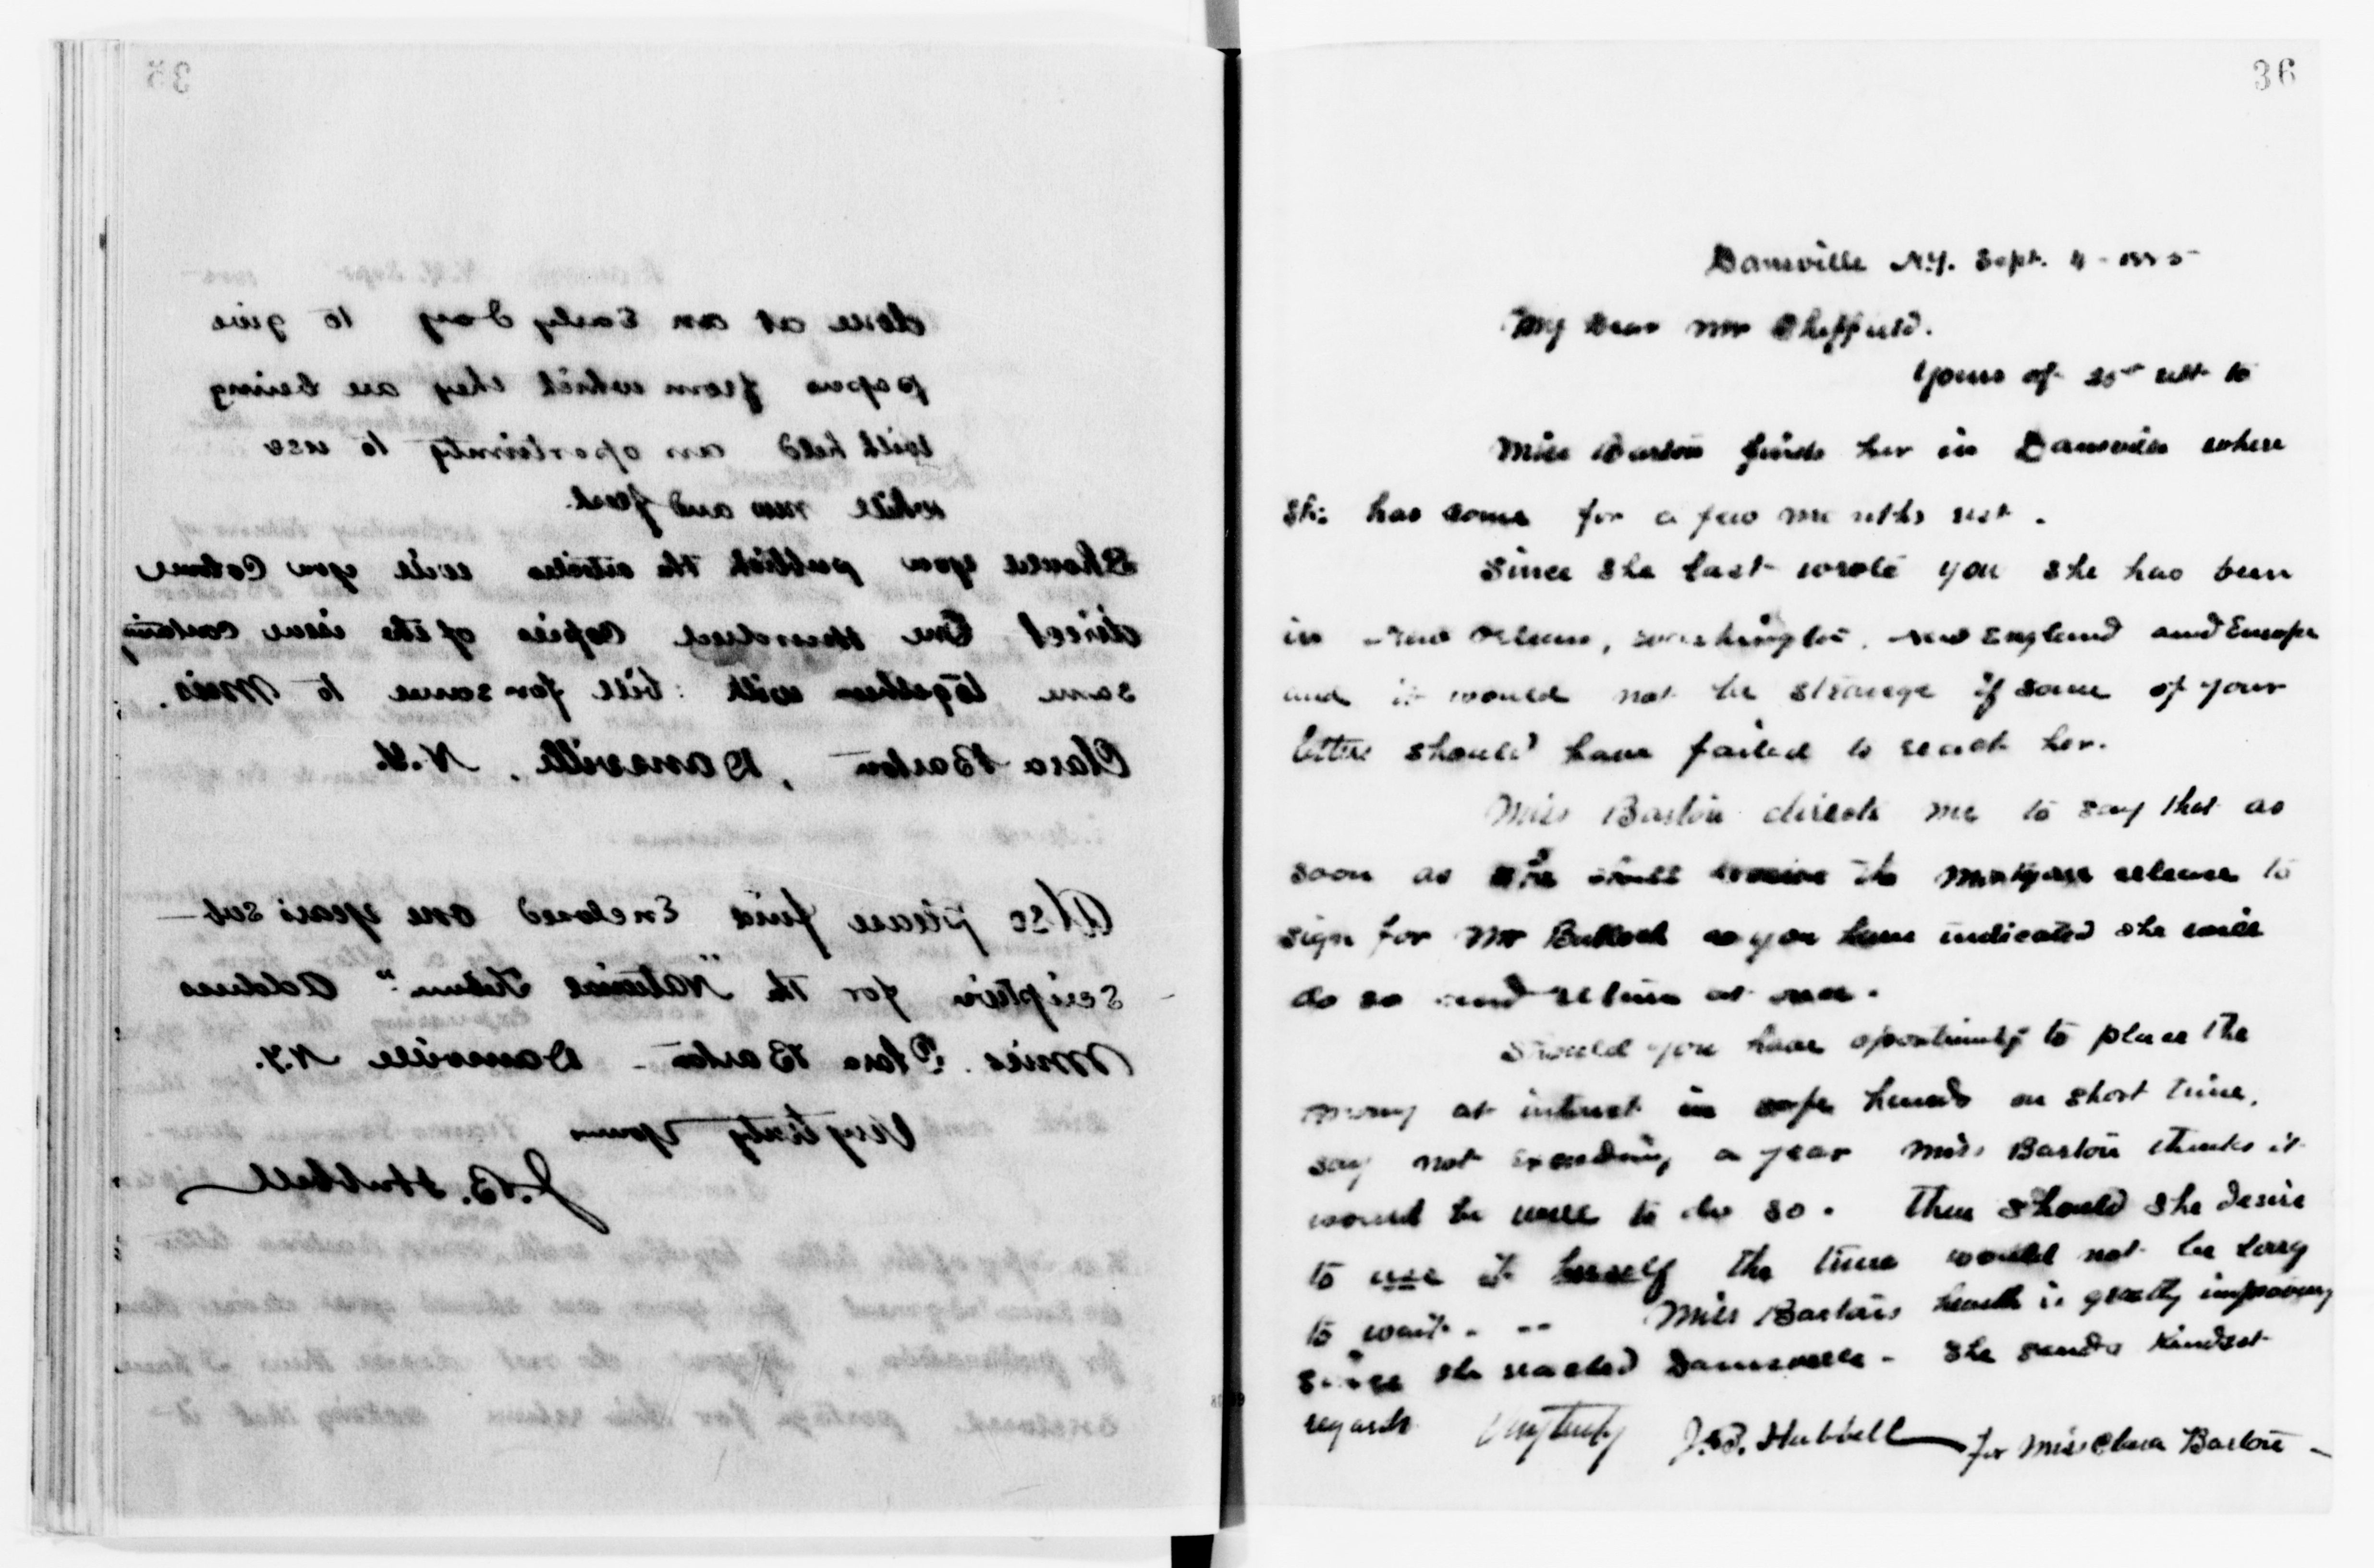 35
done at an Early day to give
papers from which they are being
with held an oportiunity to use
while new and fresh.
Should you publish the articles will you Cause
direct One Hundred Copies of the issue containing
same together with bill for same to Miss.
Clara Barton, Dansville, N.Y.
Also please find Enclosed one years sub-
scription for the "National Tribune" Address
Miss. Clara Barton - Dansville N.Y.
Very truly yours
J.B. Hubbell
36
Dansville N.Y. Sept. 4 - 1885-
My Dear Mr Sheffield.
Yours of ult to
Miss Barton finds her in Dansville where
She has come for a few months rest.
Since She last wrote you she has been
in New Orleans, Washington, New England and Europe
and it would not be strange if some of your
letters should have failed to reach her.
Miss Barton directs me to say that as
soon as she shall receive the mortgage release to
sign for Mr Bullock as you have indicated she will
do so and return at once.
Should you have oportiunity to place the
money at interest in safe hands on short time,
say not exceeding a year Miss Barton thinks it
would be well to do so. Then should she desire
to use it herself the time would not be long
to wait. -- Miss Bartons health is greatly improving
since she reached Dansville - She sends kindest
regards Very truly J.B. Hubbell for Miss Clara Barton -